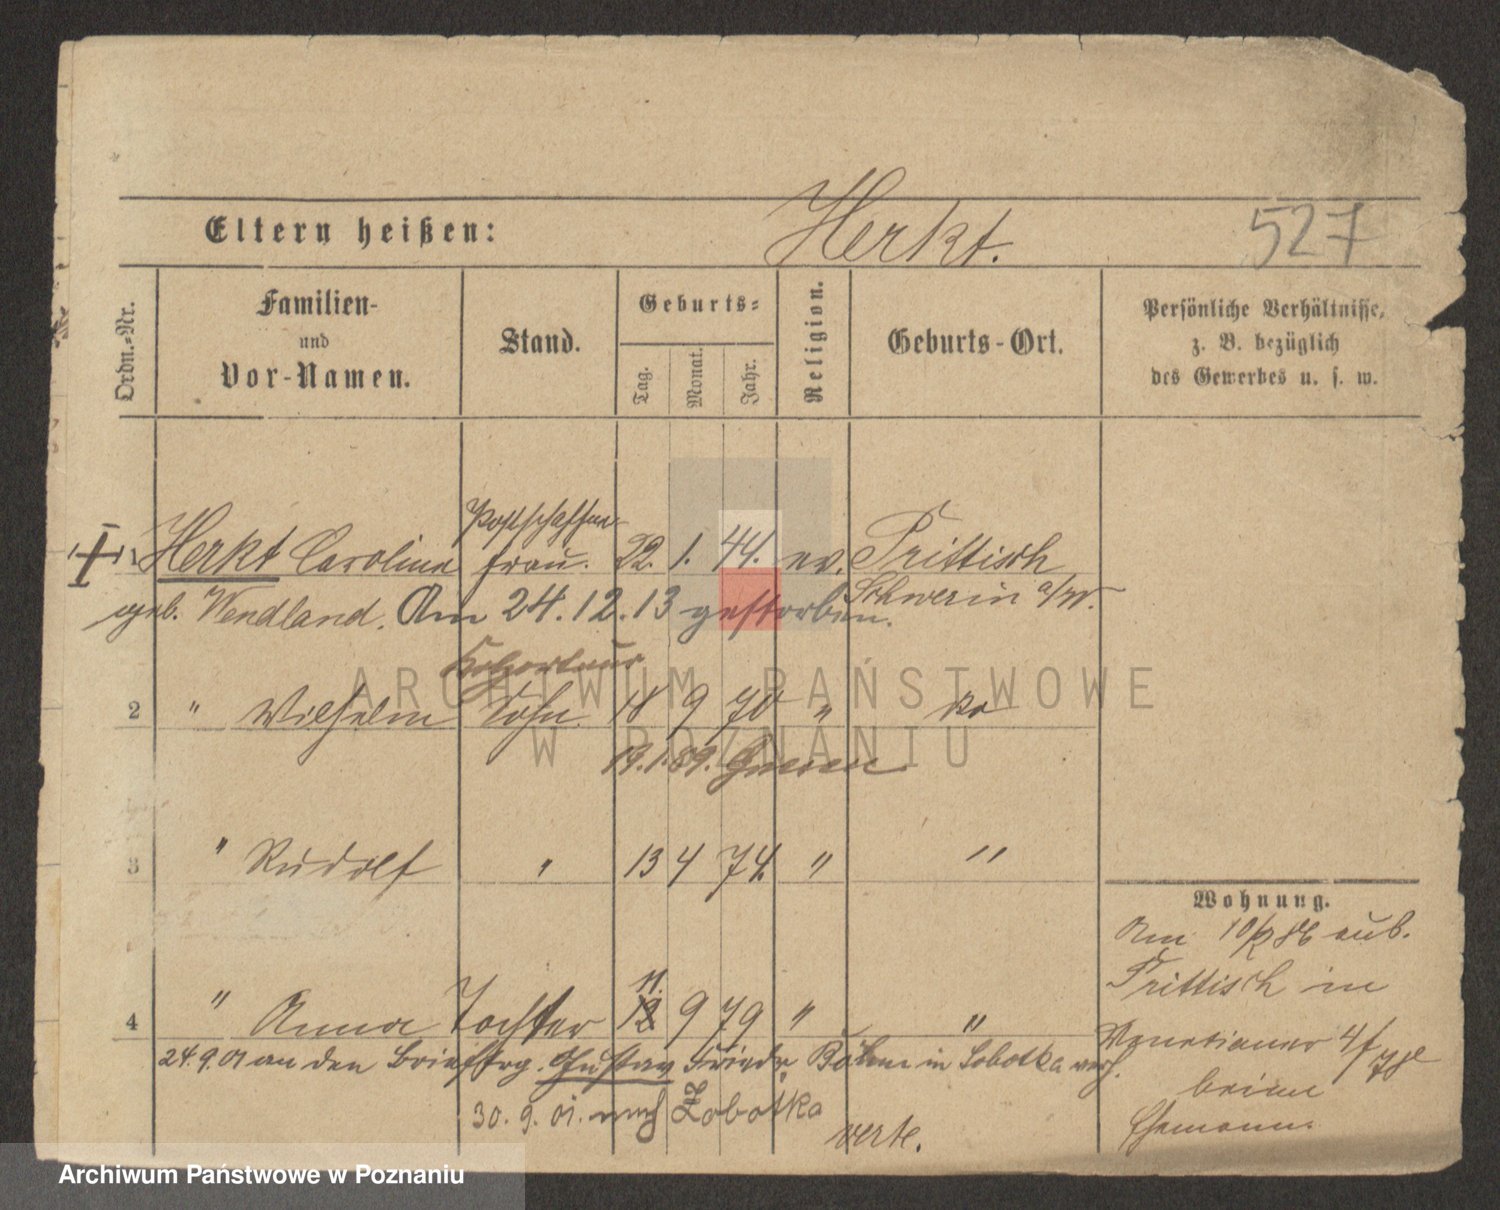 Eltern heißen: Herkt. 527
Ordn.-Nr. Familien- und Vor-Namen. Stand. Geburts- Tag. Monat. Jahr. Religion. Geburts-Ort. Persönliche Verhältnisse, z. B. bezüglich des Gewerbes u. s. w.
Postschaffner
1 Herkt Carolina frau. 22. 1. 44. ev. Trittisch
geb. Wendland. Am 24.12.13 gestorben. Schwerin a/W.
2 " Wilhelm Sohn 18 9 70 "
19.1.89. Gnesen
3 " Rudolf " 13 4 74. " "
Wohnung.
Am 10/2 86 aus.
Trittisch in
11.
4 " Anna Tochter 12 9 79 " "
Venetianer 4/
24.9.01 an den Brieftrg. Gustav Friedr. Böhm in Sobotka verh.
beim
30.9.01. nach Sobotka
Ehemann.
verte.
ARCHIWUM PAŃSTWOWE
W POZNANIU
Archiwum Państwowe w Poznaniu